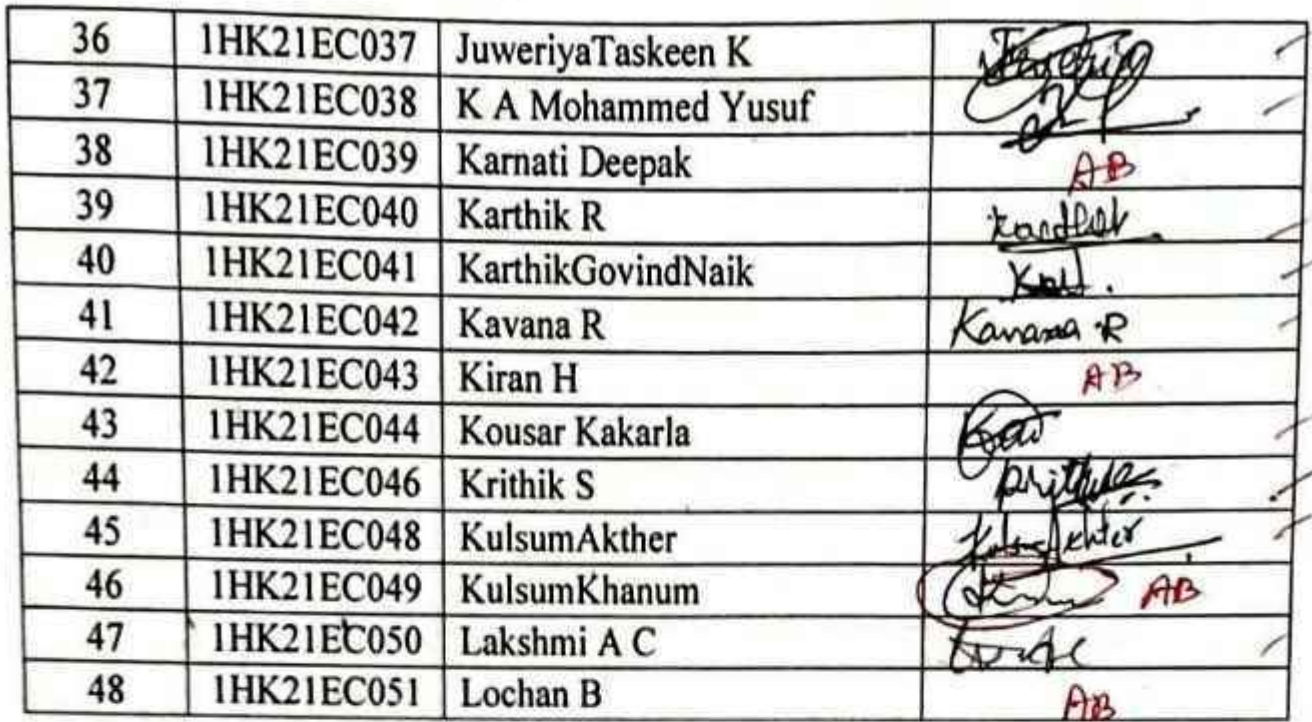 36 1HK21EC037 JuweriyaTaskeen K
37 1HK21EC038 K A Mohammed Yusuf
38 1HK21EC039 Karnati Deepak AB
39 1HK21EC040 Karthik R
40 1HK21EC041 KarthikGovindNaik
41 1HK21EC042 Kavana R Kavana R
42 1HK21EC043 Kiran H AB
43 1HK21EC044 Kousar Kakarla
44 1HK21EC046 Krithik S
45 1HK21EC048 KulsumAkther
46 1HK21EC049 KulsumKhanum AB
47 1HK21EC050 Lakshmi A C
48 1HK21EC051 Lochan B AB